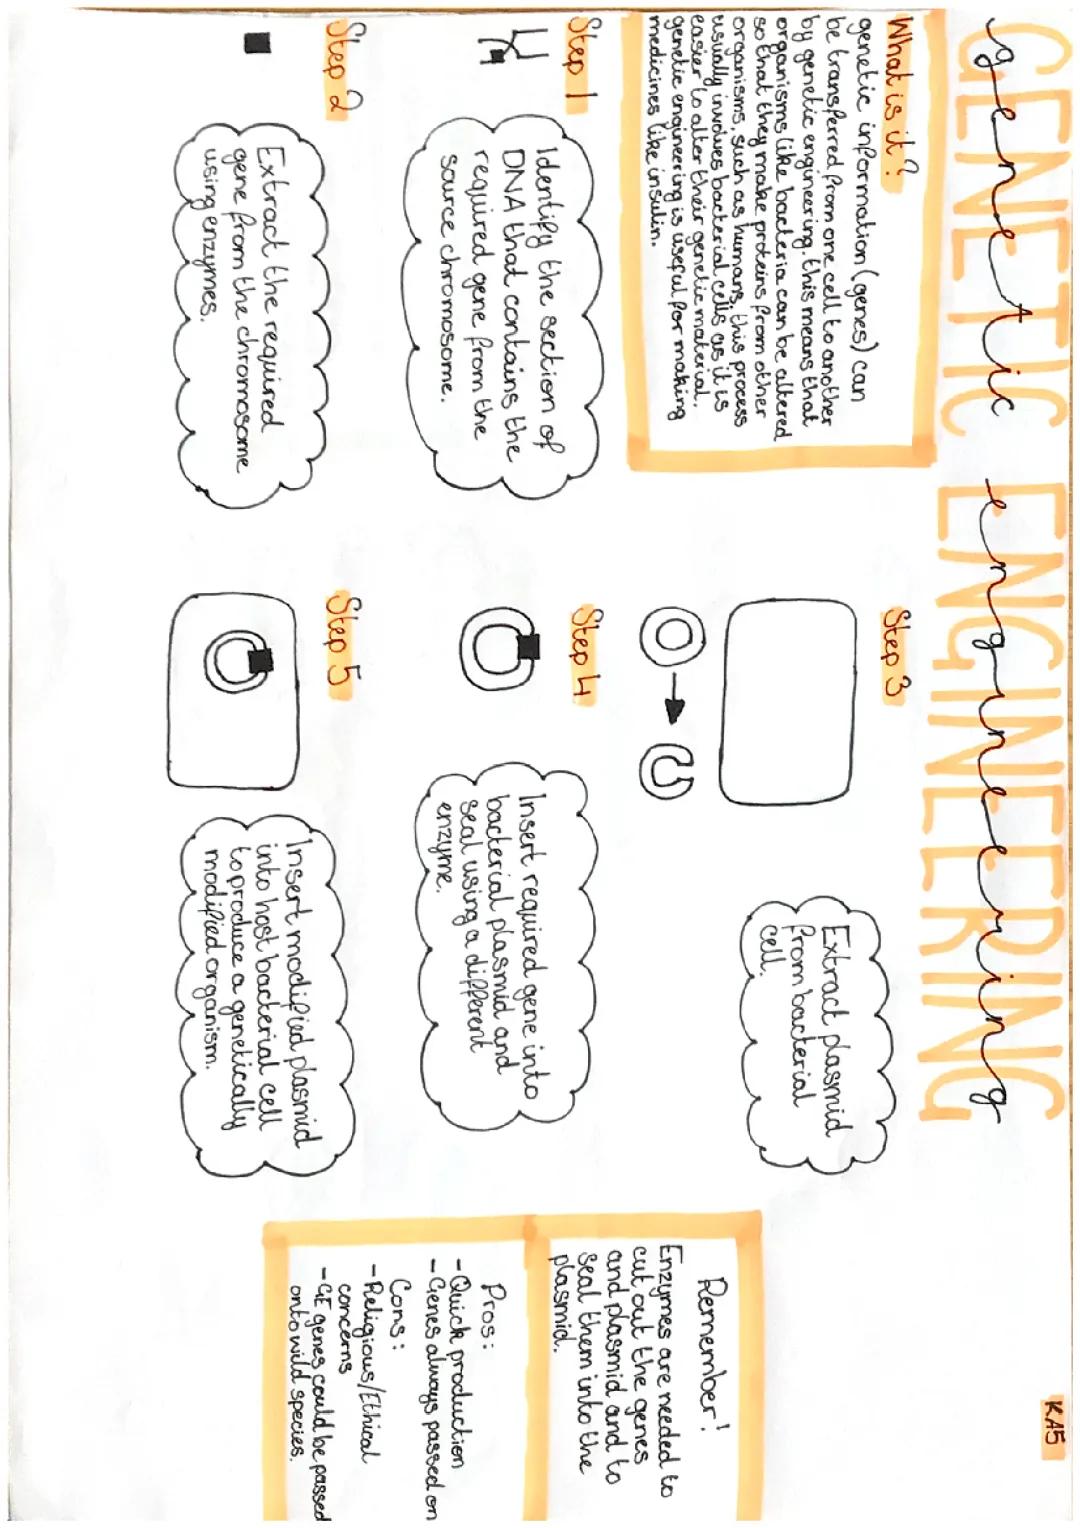 GENETIC ENGINEERING
genetic engineering
KA5
What is it?
genetic information (genes) can
be transferred from one cell to another
by genetic engineering. this means that
organisms like bacteria can be altered
so that they make proteins from other
organisms, such as humans, this process
usually involves bacterial cells as it is
easier to alter their genetic material.
genetic engineering is useful for making
medicines like insulin.
Step 1
Identify the section of
DNA that contains the
required gene from the
source chromosome.
Step 2
Extract the required
gene from the chromosome
using enzymes.
Step 3
Extract plasmid
from bacterial
cell.
Step 4
Insert required gene into
bacterial plasmid and
seal using a different
enzyme.
Step 5
Insert modified plasmid
into host bacterial cell
to produce a genetically
modified organism.
Remember!
Enzymes are needed to
cut out the genes
and plasmid and to
seal them into the
plasmid.
Pros:
- Quick production
- Genes always passed on
Cons:
- Religious/Ethical
concerns
- GE genes could be passed
onto wild species.